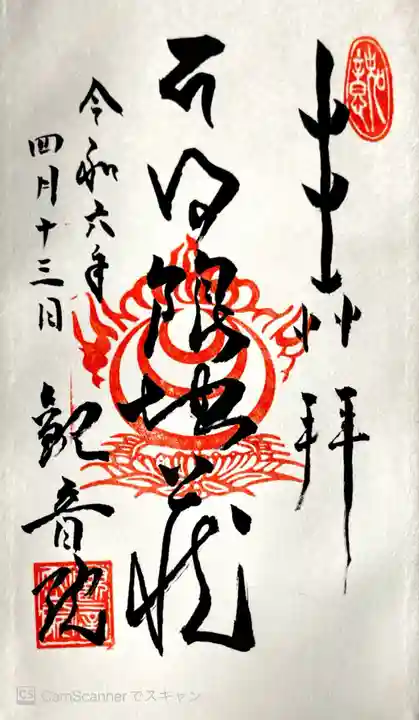 奉拝
日限地蔵
令和六年
四月十三日
観音院
CS CamScannerでスキャン